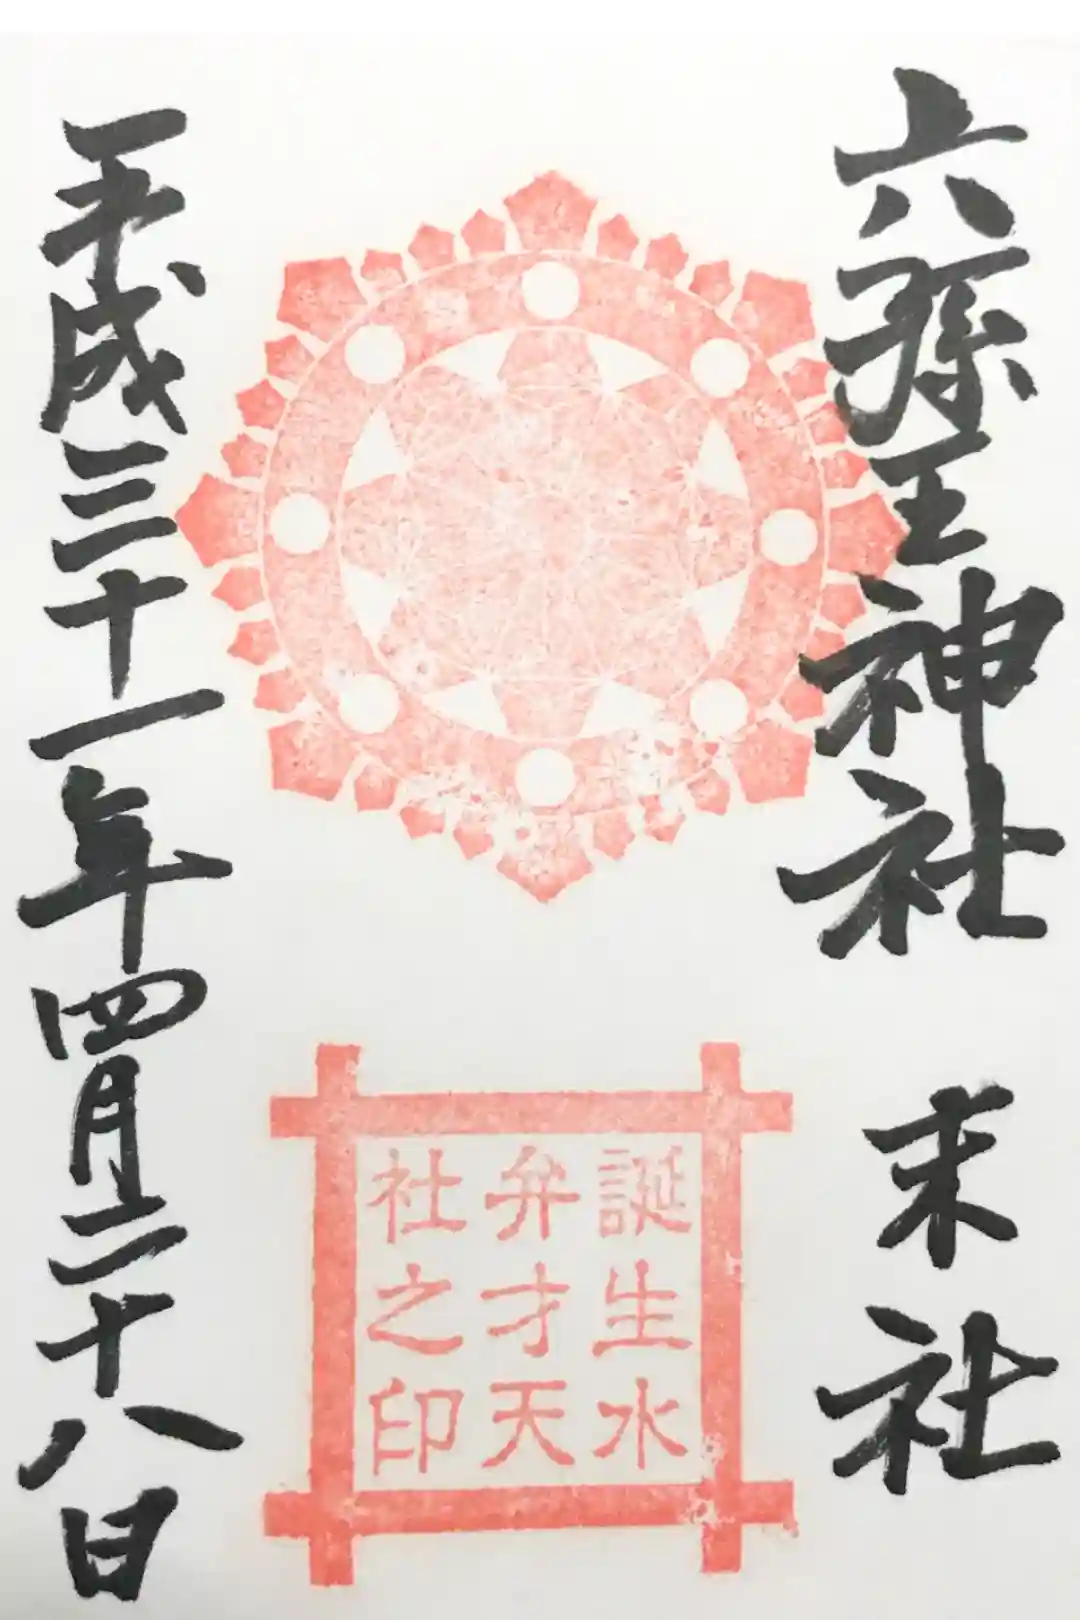 六孫王神社　末社
誕生水
弁才天
社之印
平成三十一年四月二十八日